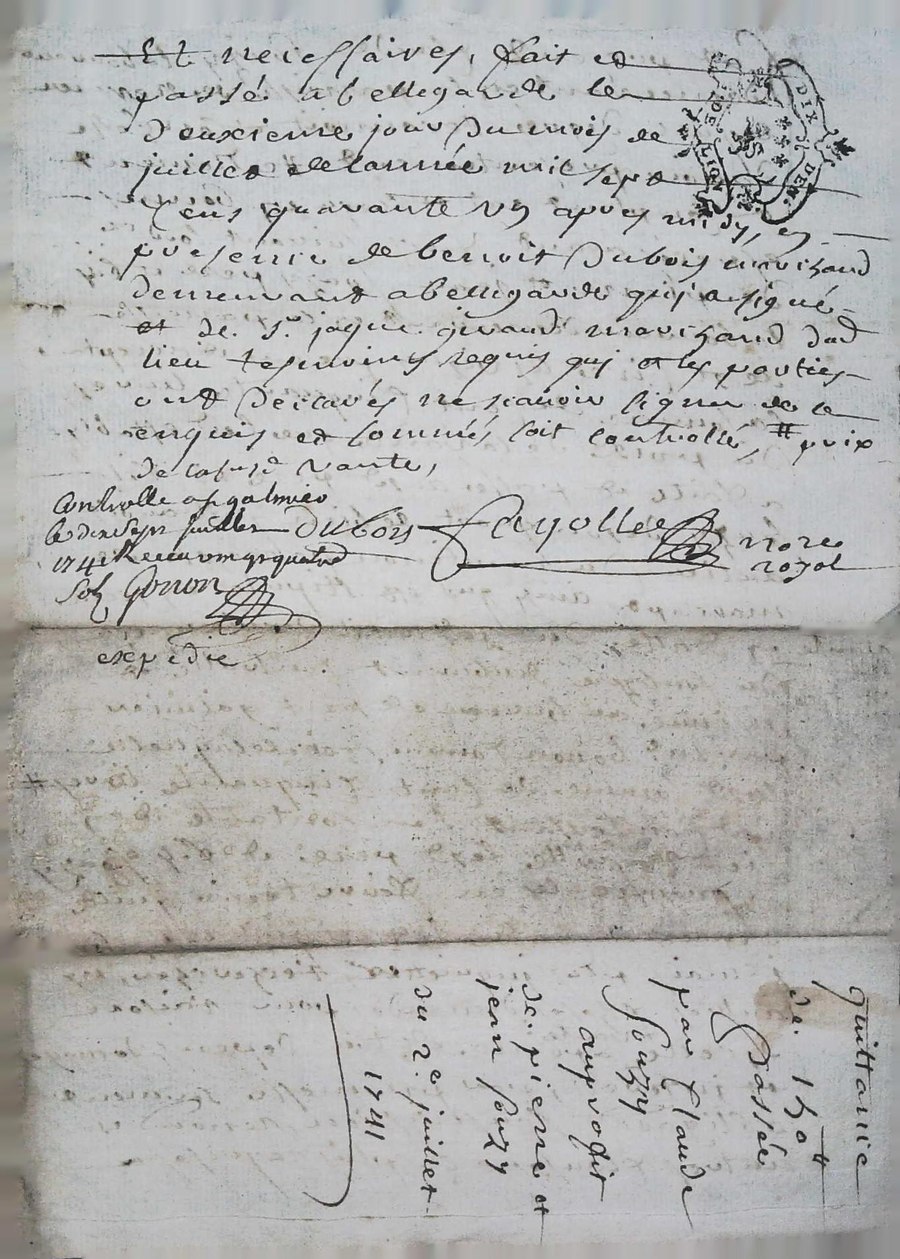 Et necessaires, fait et
passé a bellegarde le
deuxieme jour du mois de
juillet de l'année mil sept
cens quarante un apres midy, en
presence de benoit Dubois marchand
demeurant a bellegarde quj a signé
et de Sr jaque giraud marchand dud
lieu tesmoins requis quj et les parties
ont declarés ne scavoir signer de ce
enquis et sommés, soit controllé, # prix
de la susd vante,
DIX DEN.
Controlle a St galmier
le dix sept juillet
1741 Receu vingt quatre
Sols Gonon
Dubois
Fayolle
nore
royal
expedie
quittance
de 150 #
Passée
par Claude
Souzy
au profit
de pierre et
jean Souzy
du 2e juillet
1741